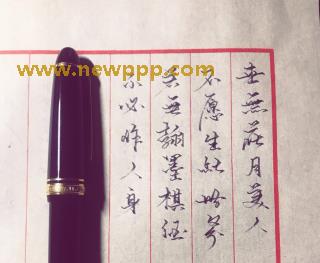 www.newppp.com
世無花月美人
不愿生此世界
若無翰墨棋酒
不必作人身